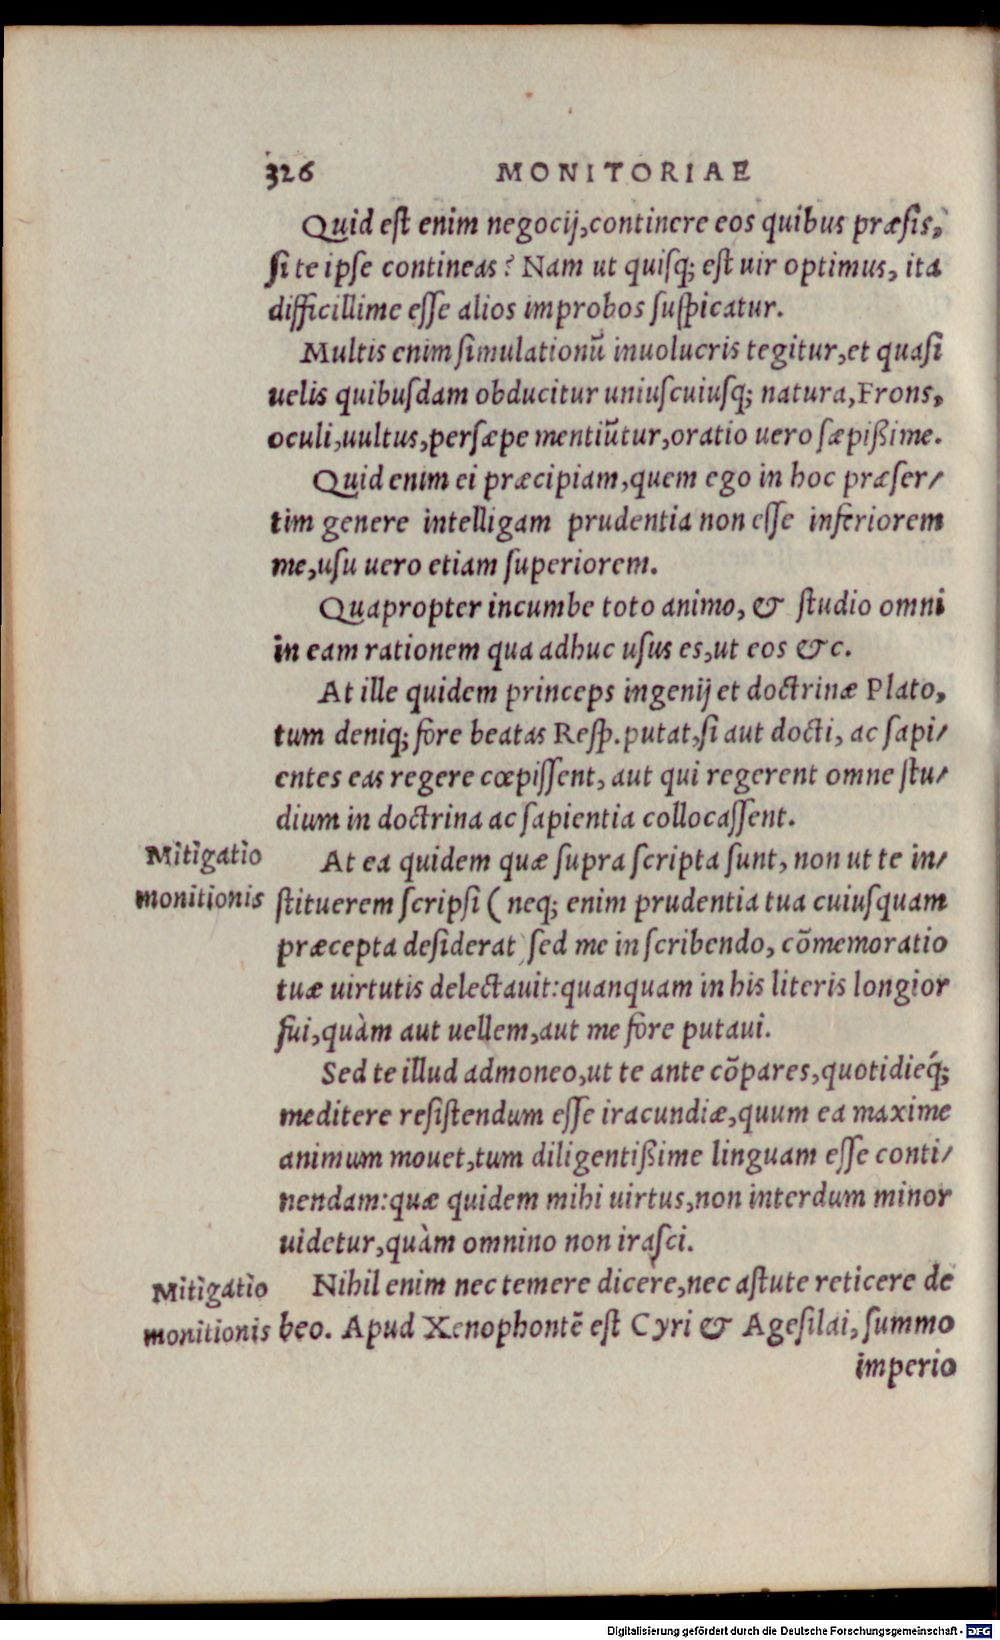 326 MONITORIAE
Quid est enim negocij, continere eos quibus præsis,
si te ipse contineas? Nam ut quisq; est uir optimus, ita
difficillime esse alios improbos suspicatur.
Multis enim simulationū inuolucris tegitur, et quasi
uelis quibusdam obducitur uniuscuiusq; natura, Frons,
oculi, uultus, persæpe mentiūtur, oratio uero sæpißime.
Quid enim ei præcipiam, quem ego in hoc præser/
tim genere intelligam prudentia non esse inferiorem
me, usu uero etiam superiorem.
Quapropter incumbe toto animo, & studio omni
in eam rationem qua adhuc usus es, ut eos &c.
At ille quidem princeps ingenij et doctrinæ Plato,
tum deniq; fore beatas Resp. putat, si aut docti, ac sapi/
entes eas regere cœpissent, aut qui regerent omne stu/
dium in doctrina ac sapientia collocassent.
Mitigatio
monitionis
At ea quidem quæ supra scripta sunt, non ut te in/
stituerem scripsi ( neq; enim prudentia tua cuiusquam
præcepta desiderat) sed me in scribendo, cōmemoratio
tuæ uirtutis delectauit: quanquam in his literis longior
fui, quàm aut uellem, aut me fore putaui.
Sed te illud admoneo, ut te ante cōpares, quotidieq́;
meditere resistendum esse iracundiæ, quum ea maxime
animum mouet, tum diligentißime linguam esse conti/
nendam: quæ quidem mihi uirtus, non interdum minor
uidetur, quàm omnino non irasci.
Mitigatio
monitionis
Nihil enim nec temere dicere, nec astute reticere de
beo. Apud Xenophontē est Cyri & Agesilai, summo
imperio
Digitalisierung gefördert durch die Deutsche Forschungsgemeinschaft - DFG